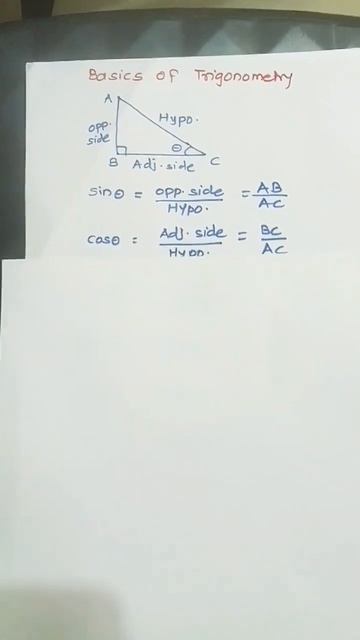 Basics of Trigonometry
A
Hypo.
opp.
side
θ
B Adj. side C
sinθ = opp. side / Hypo. = AB / AC
cosθ = Adj. side / Hypo. = BC / AC